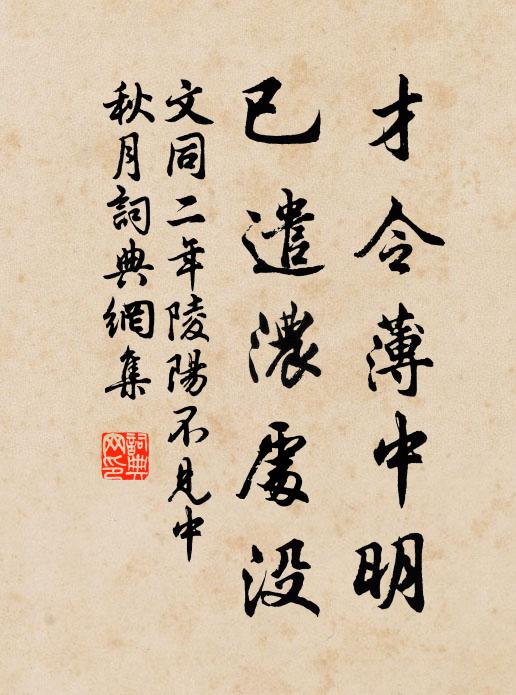 才令薄中明
已遣濃處没
文同二年陵陽不見中
秋月詞典網集
詞典网印